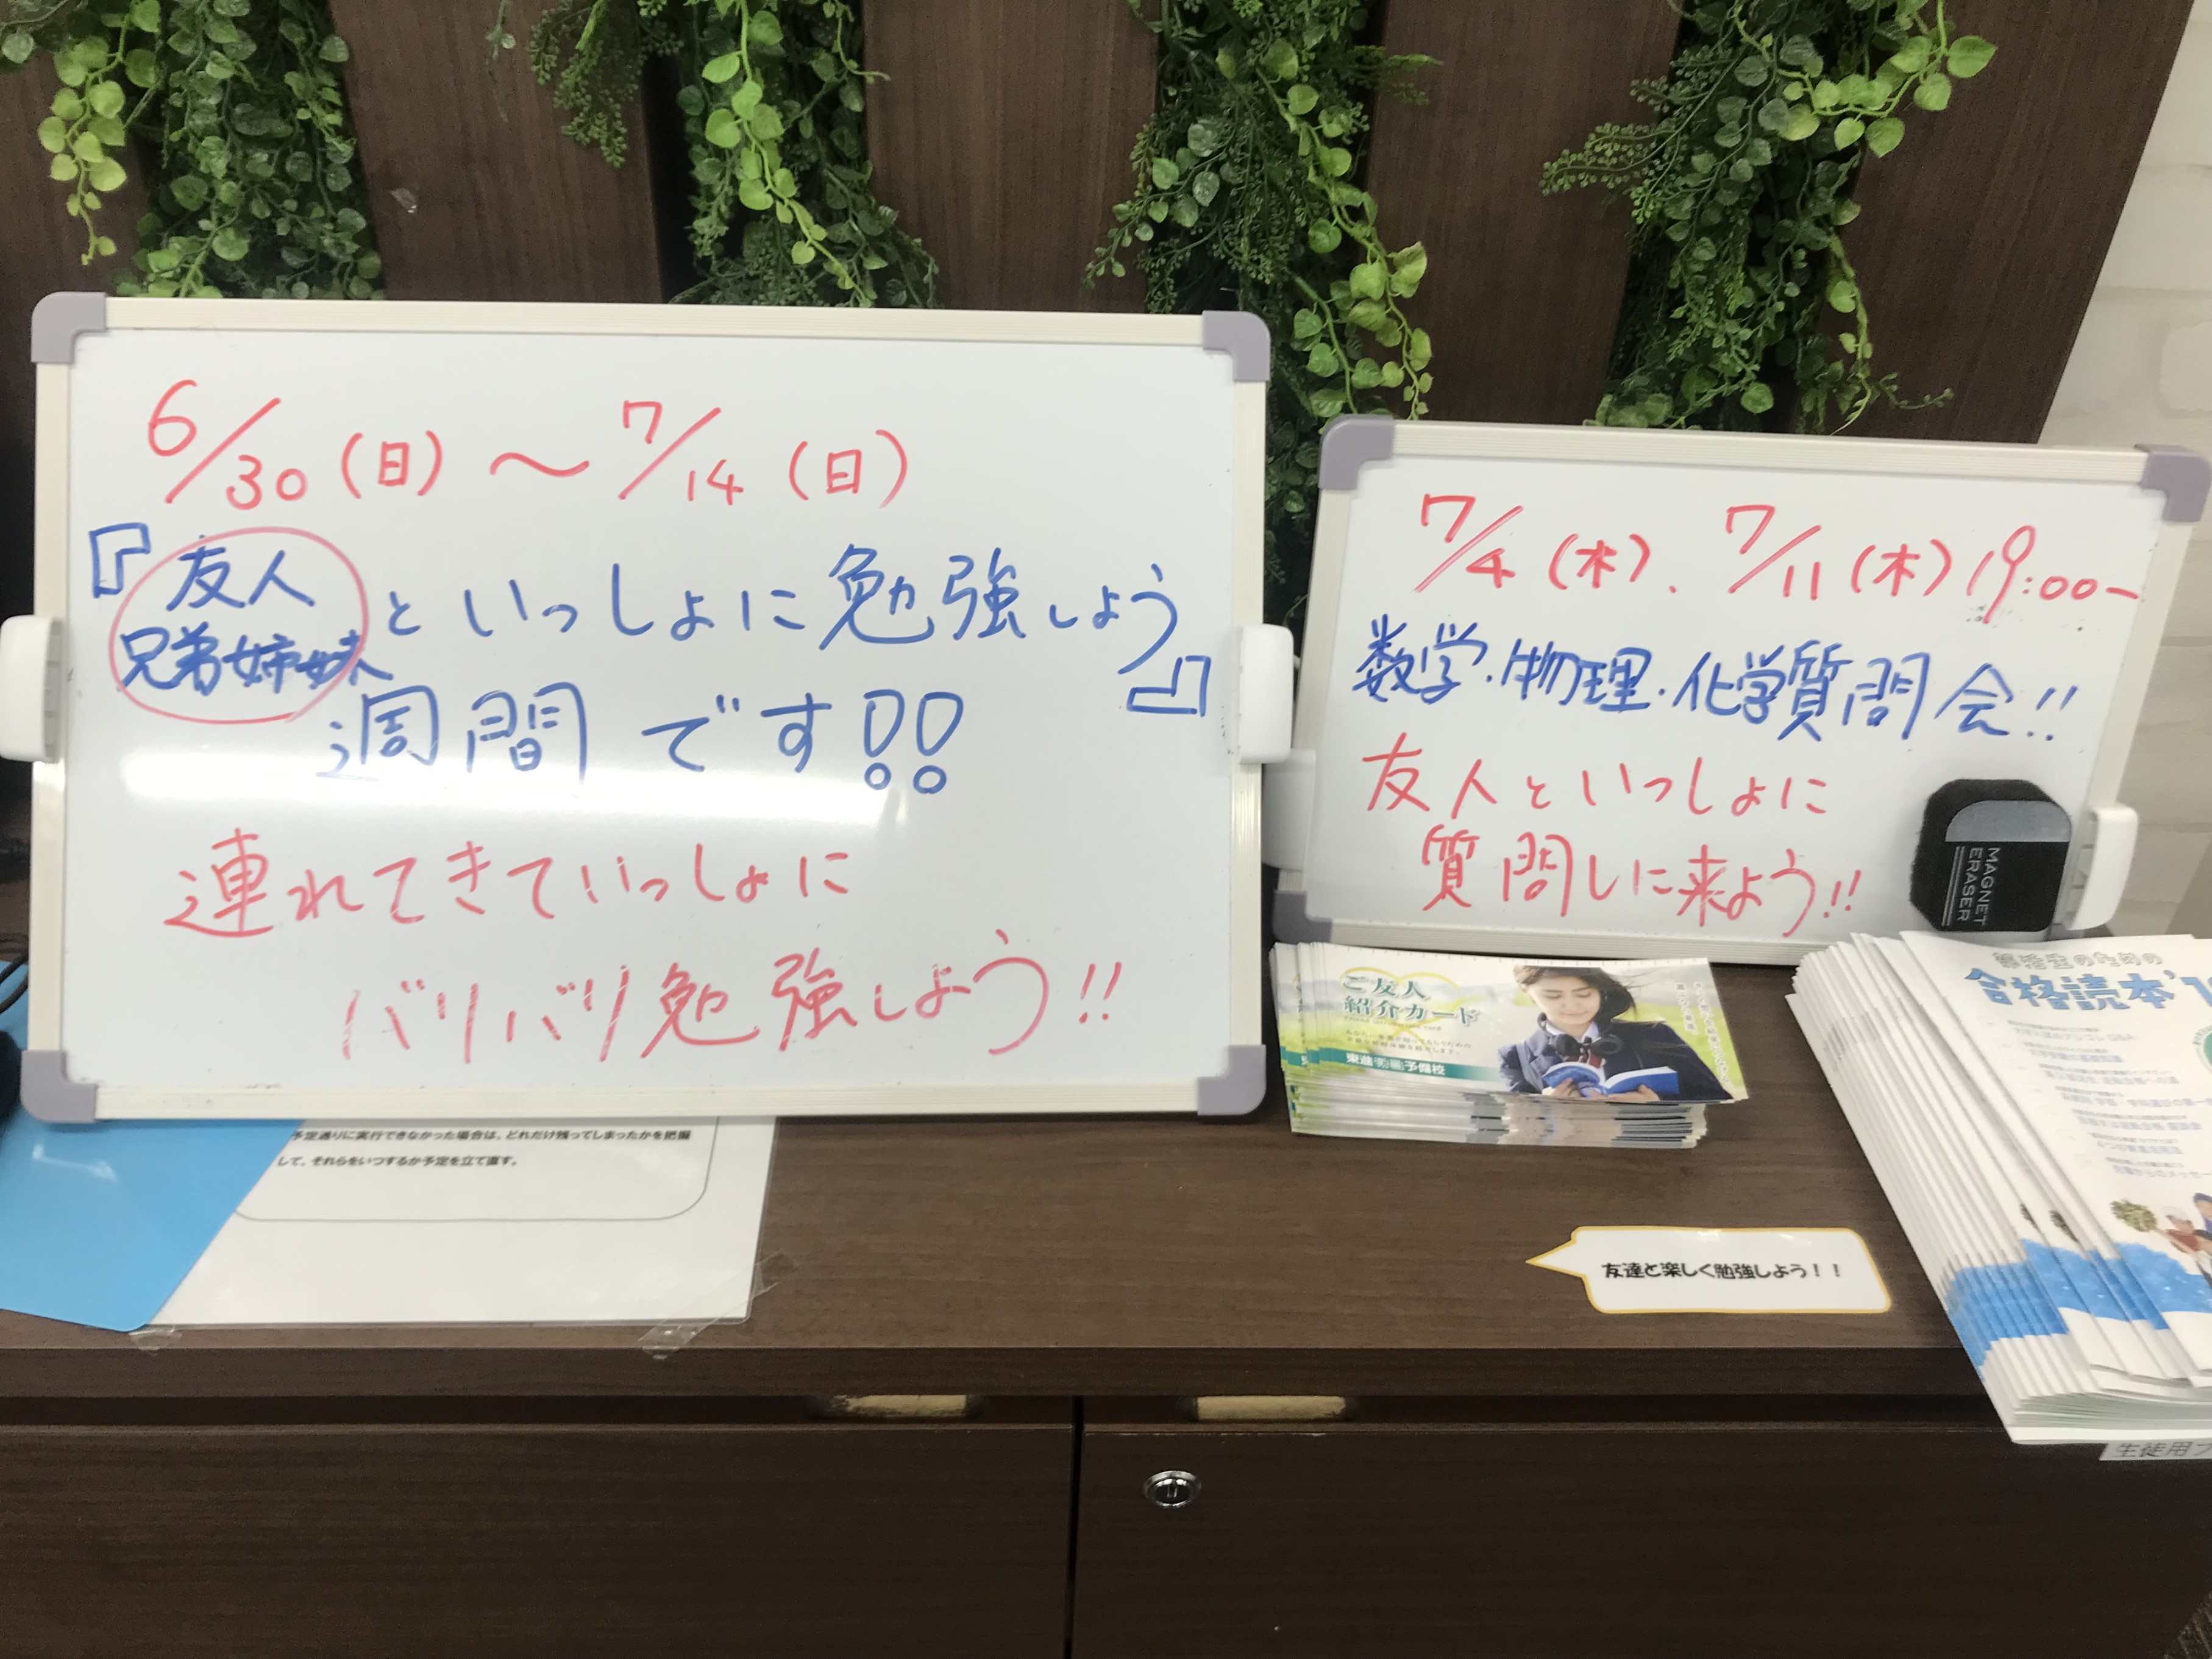 6/30(日)〜7/14(日)
『友人
兄弟姉妹
といっしょに勉強しよう』
週間です!!
連れてきていっしょに
バリバリ勉強しよう!!
7/4(木)、7/11(木)19:00〜
数学・物理・化学質問会!!
友人といっしょに
質問しに来よう!!
MAGNET
ERASER
ご友人
紹介カード
東進衛星予備校
合格読本'1
予定通りに実行できなかった場合は、どれだけ残ってしまったかを把握
して、それらをいつするか予定を立て直す。
友達と楽しく勉強しよう！！
生徒用